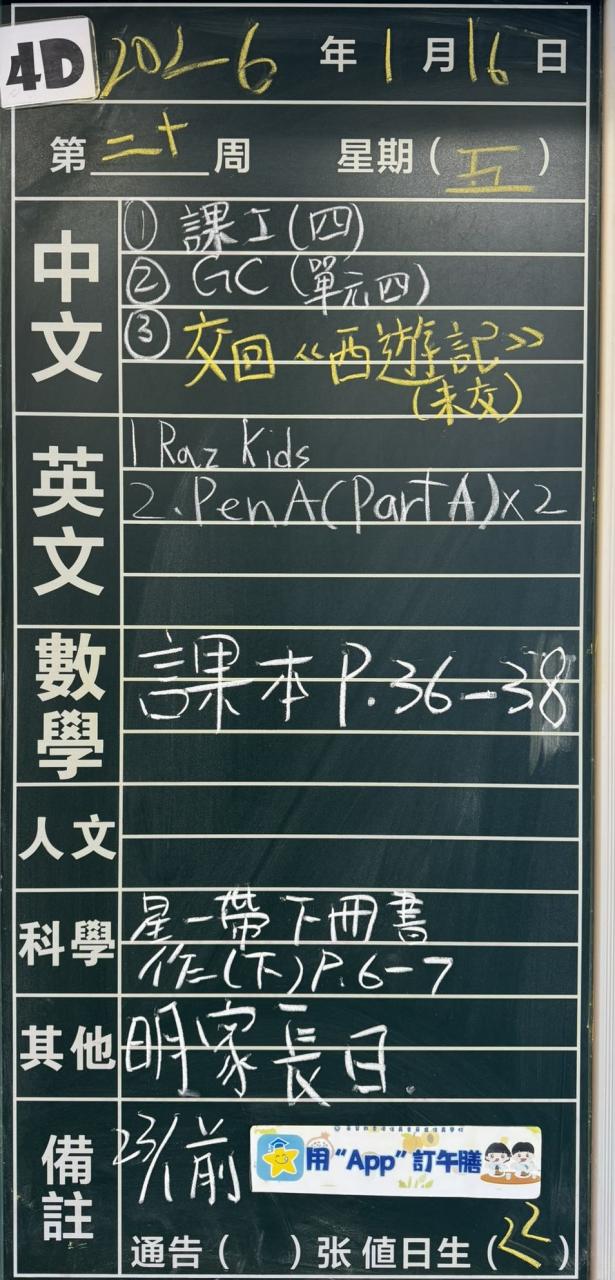 4D 2026 年 1 月 16 日
第 二十 周 星期 ( 五 )
中文
① 課工(四)
② GC (單元四)
③ 交回《西遊記》
(未交)
英文
1 Raz Kids
2. Pen A (Part A) x 2
數學
課本 P. 36-38
人文
科學
星一帶下冊書
作(下) P. 6-7
其他
明家長日.
備註
23/1前
用“App”訂午膳
通告 ( ) 张 值日生 ( 22 )